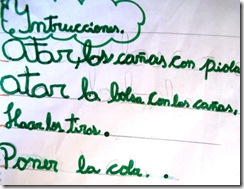 Yntrucciones.
Atar, los cañas con piola
atar la bolsa con los cañas.
Hacer los tiros.
Poner la cola. .